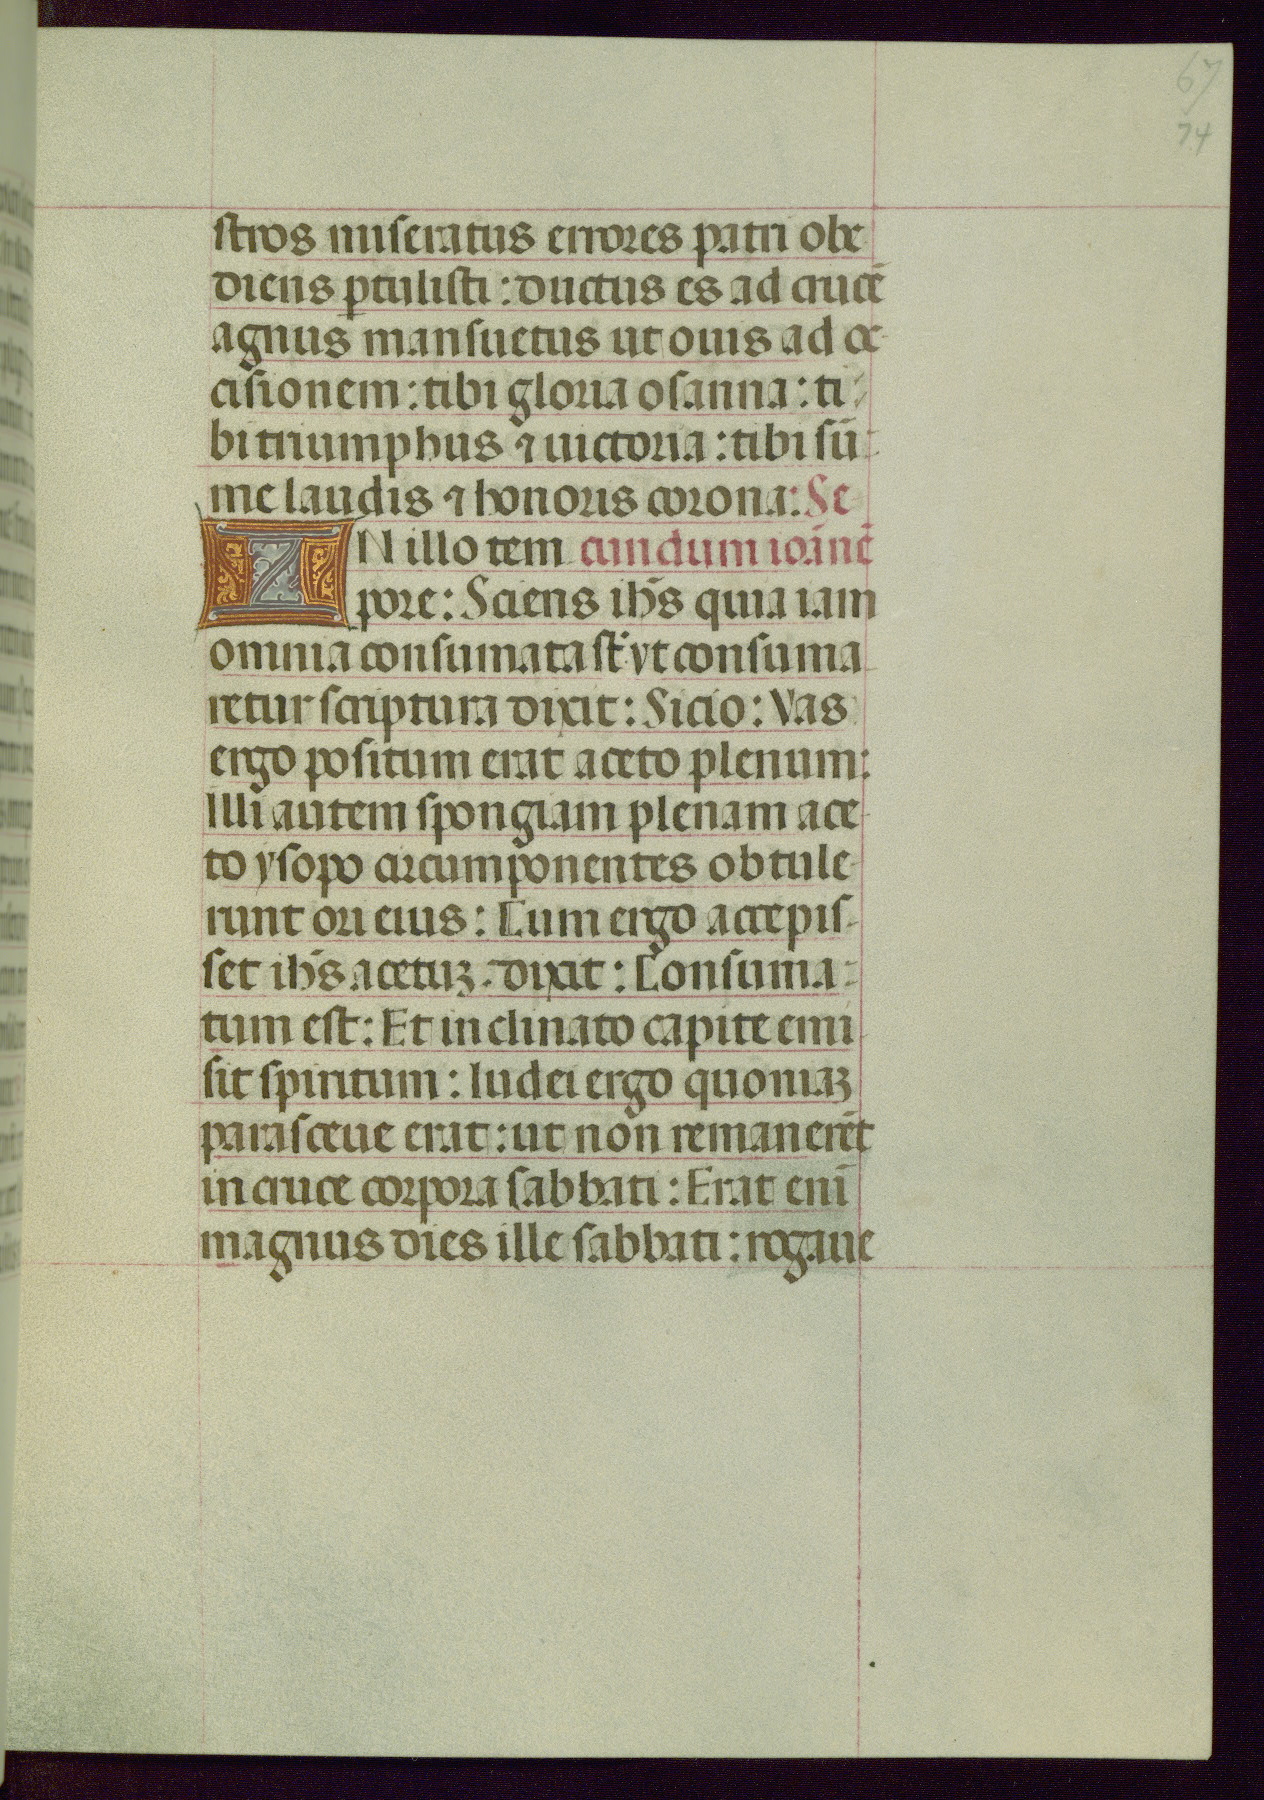 67
74
stros miseratus errores patri obe
diens ptulisti : ductus es ad crucē
agnus mansuetus ut ouis ad oc-
cisionem : tibi gloria osanna : ti-
bi triumphus ⁊ uictoria : tibi sū-
me laudis ⁊ honoris corona : Se
IN illo tem cundum ioānē
pore : Sciens ih̄s quia iam
omnia consumata st̄ yt consuma
retur scriptura dixit : Sicio : Vas
ergo positum erat aceto plenum :
Illi autem spongiam plenam ace-
to ysopo circumponentes obtule-
runt ori eius : Cum ergo accepis-
set ih̄s acetuꝫ . dixit : Consuma-
tum est : Et inclinato capite emi
sit spiritum : Iudei ergo quoniaꝫ
parasceue erat : ut non remanerēt
in cruce corpora sabbati : Erat enī
magnus dies ille sabbati : rogaue